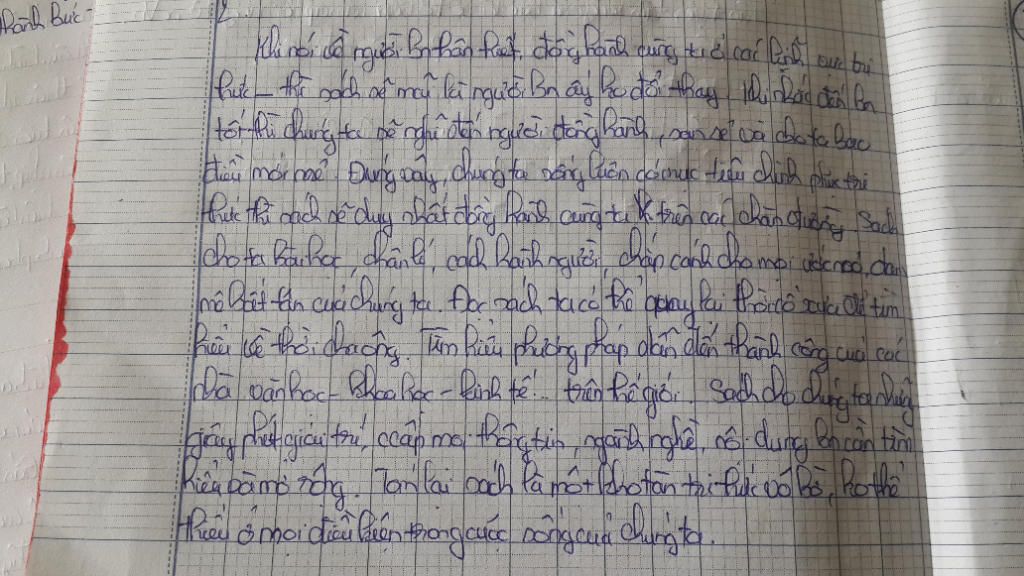 Thành Bức
2.
Khi nói về người bn thân thuộc, đồng hành cùng ta ở các lĩnh vực tri
thức - thì sách sẽ mãi là người bn ấy ko đổi thay. Khi nhắc đến bn
tốt thì chúng ta sẽ nghĩ đến người đồng hành, san sẻ và cho ta bao
điều mới mẻ. Đúng vậy, chúng ta sống luôn có mục tiêu chinh phục tri
thức thì sách sẽ duy nhất đồng hành cùng ta trên các chặn đường. Sách
cho ta bài học, chân lí, cách hành người, chấp cánh cho mọi ước mơ, đam
mê bất tận của chúng ta. Đọc sách ta có thể quay lại thời cổ xưa để tìm
hiểu về thời cha ông. Tìm hiểu phương pháp dẫn đến thành công của các
nhà văn học - khoa học - kinh tế... trên thế giới. Sách cho chúng ta những
giây phút giải trí, ccấp mọi thông tin, ngành nghề, nội dung bn cần tìm
hiểu và mở rộng. Tóm lại sách là một kho tàn tri thức vô bờ, ko thể
thiếu ở mọi điều kiện trong cuộc sống của chúng ta.